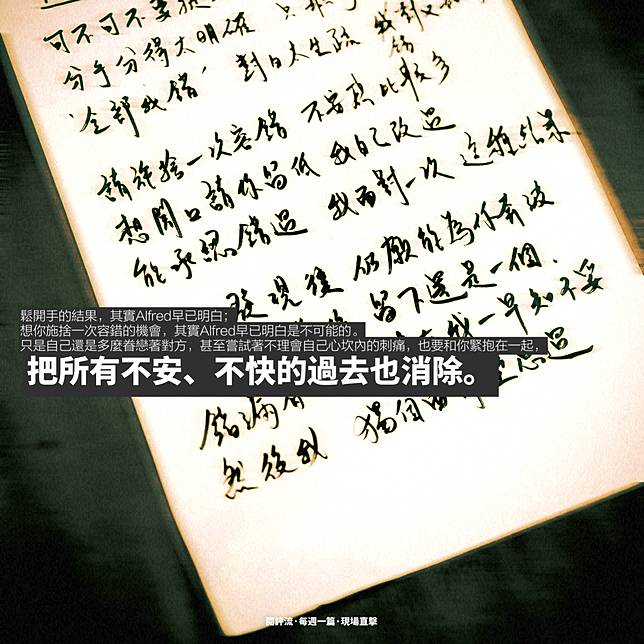 可不可不要
分手分得太明確
全部我錯，對白太生疏
請施捨一次容錯 不安 比較多
想開口請你留低 我自己改過
能承認錯過 我面對一次 這種結果
發現後 仍願能為你奔波
留下還是一個.
我一早知不妥
鬆開手的結果，其實Alfred早已明白；
想你施捨一次容錯的機會，其實Alfred早已明白是不可能的。
只是自己還是多麼眷戀著對方，甚至嘗試著不理會自己心坎內的刺痛，也要和你緊抱在一起，
把所有不安、不快的過去也消除。
錯漏有
然後我 獨個
閱評流·每週一篇·現場直擊